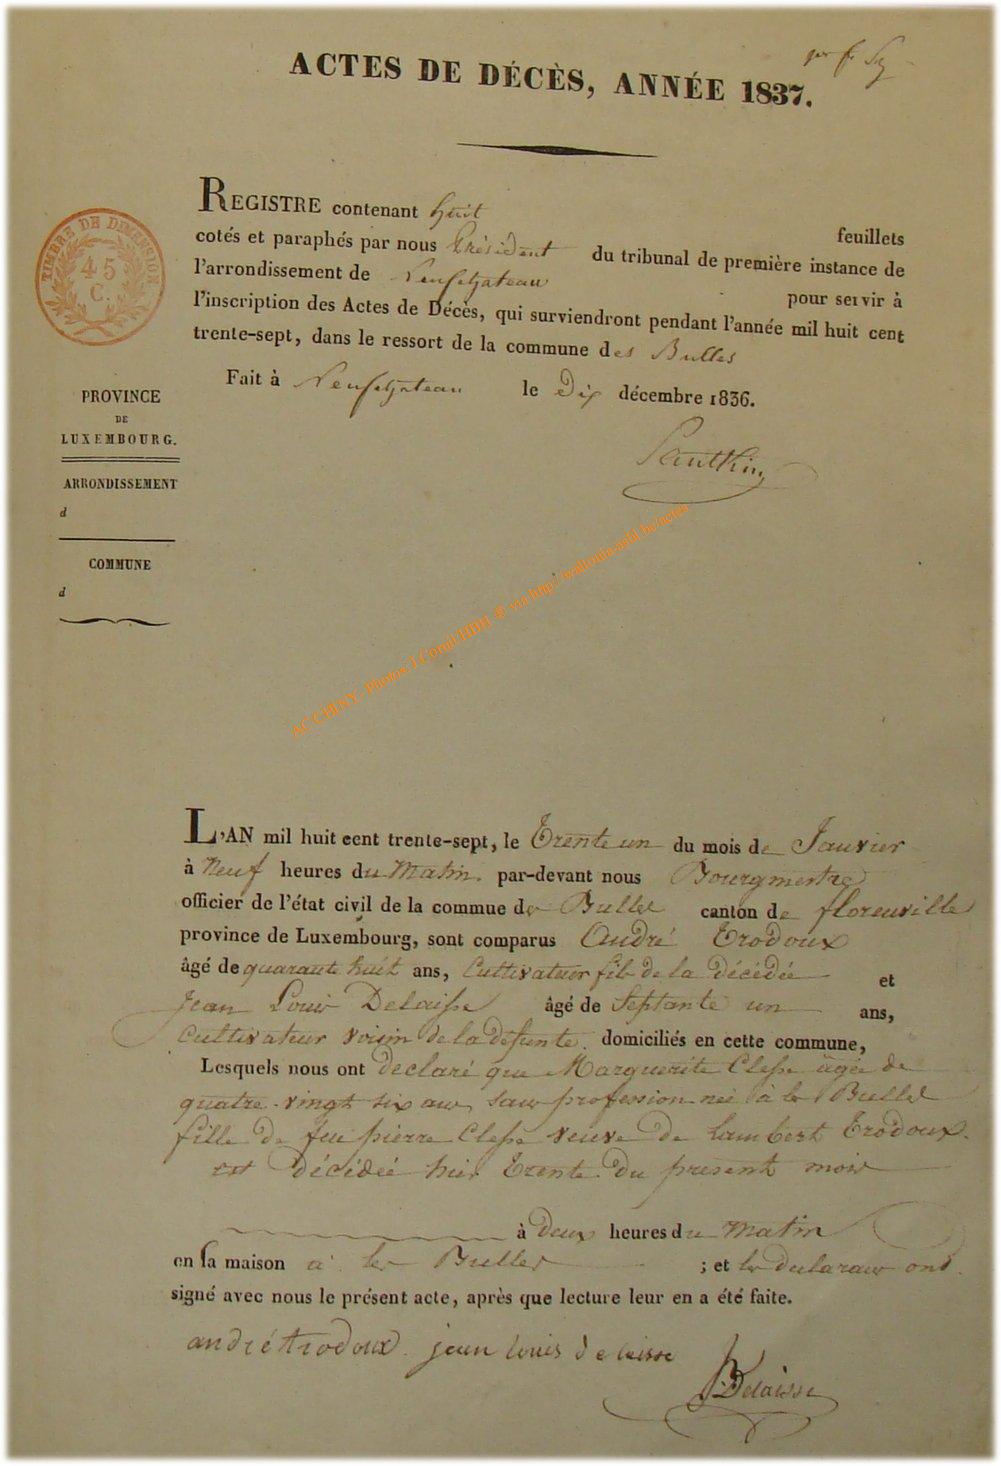 ACTES DE DÉCÈS, ANNÉE 1837.
TIMBRE DE DIMENSION
45
C.
REGISTRE contenant huit feuillets
cotés et paraphés par nous Président du tribunal de première instance de
l'arrondissement de Neufchateau pour servir à
l'inscription des Actes de Décès, qui surviendront pendant l'année mil huit cent
trente-sept, dans le ressort de la commune des Bulles
Fait à Neufchateau le dix décembre 1836.
PROVINCE
DE
LUXEMBOURG.
ARRONDISSEMENT
d
COMMUNE
d
AC CHINY- Photos J.Cornil HBH @ via http://wallonia-asbl.be/actes
L'AN mil huit cent trente-sept, le Trente un du mois de Janvier
à neuf heures du matin par-devant nous Bourgmestre
officier de l'état civil de la commue de Bulles canton de florenville
province de Luxembourg, sont comparus André Trodoux
âgé de quarante huit ans, Cultivateur fils de la décédée et
Jean Louis Delaisse âgé de Septante un ans,
Cultivateur voisin de la defunte. domiciliés en cette commune,
Lesquels nous ont declaré que Marguerite Clesse âgée de
quatre-vingt six ans, sans profession née à les Bulles
fille de feu pierre Clesse veuve de Lambert Trodoux.
est décédée hier trente du present mois
à deux heures du matin
en sa maison à les Bulles ; et les declarans ont
signé avec nous le présent acte, après que lecture leur en a été faite.
andré trodoux jean louis delaisse
Delaisse